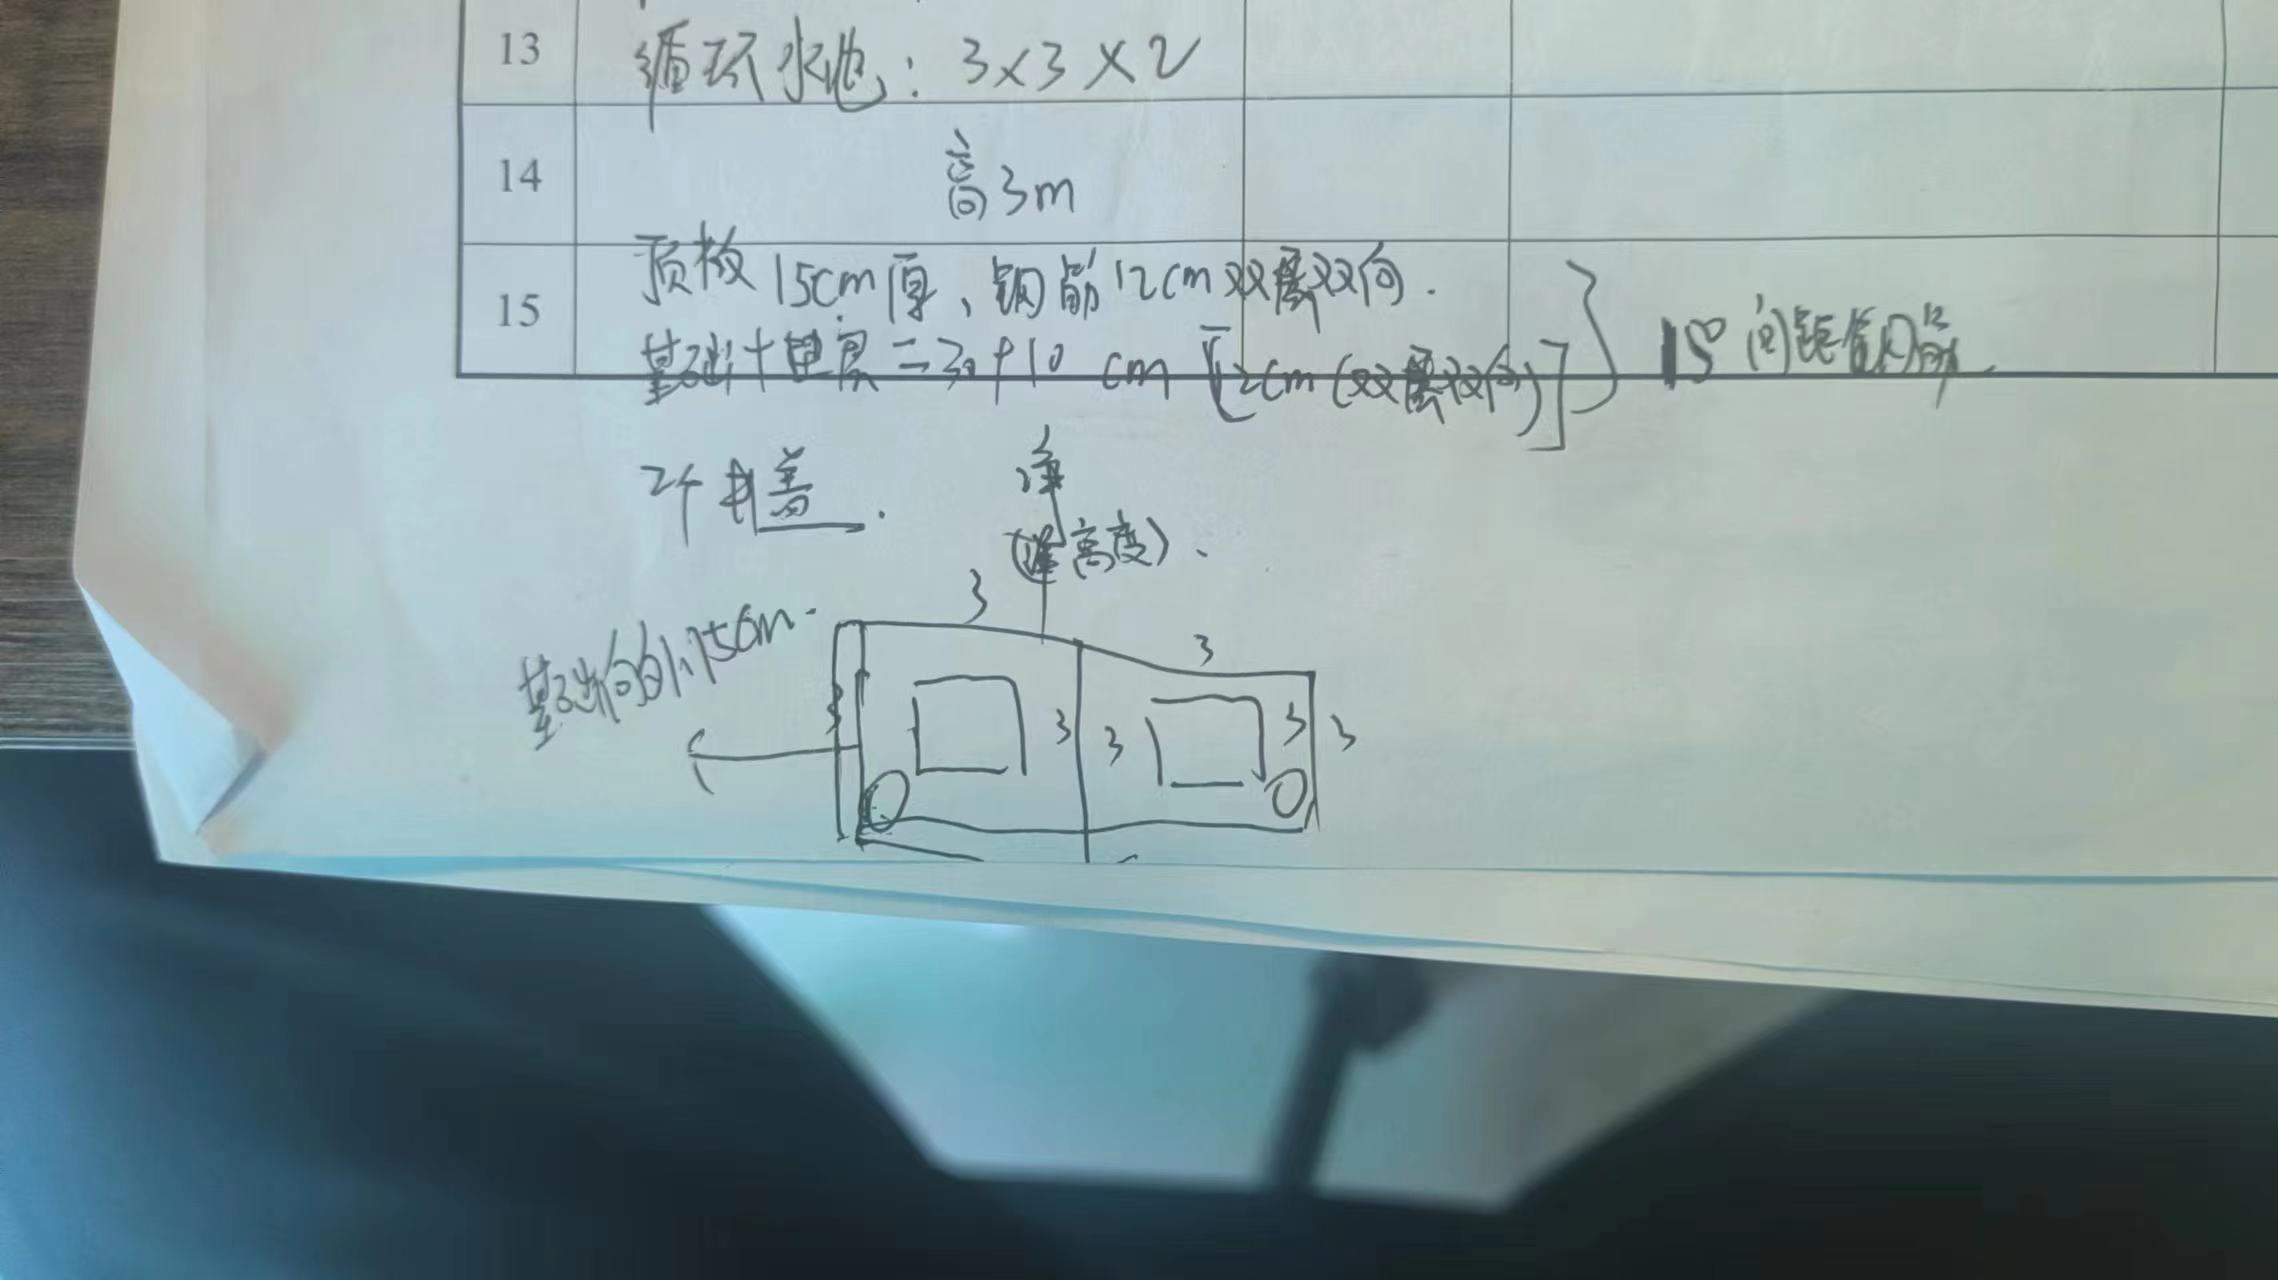 13
循环水池：3×3×2
14
高3m
15
顶板15cm厚、钢筋12cm双层双向.
基础+垫层=30+10 cm [12cm(双层双向)]
150间距钢筋
2个井盖.
净
高度)、
3
3
基础向外15cm.
3
3
3
3
3